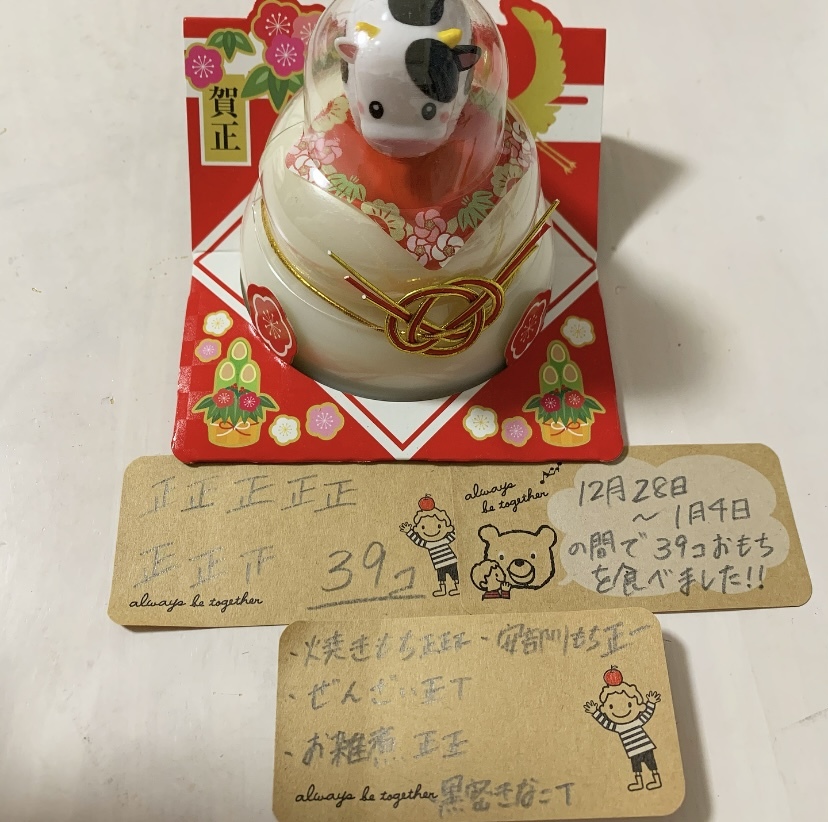 賀正
正正正正正
正正
39コ
always be together
always
be together
12月28日
～1月4日
の間で39コおもち
を食べました!!
・焼きもち正正 ・安部川もち正一
・ぜんざい正T
・お雑煮 正正
always be together
黒蜜きなこT